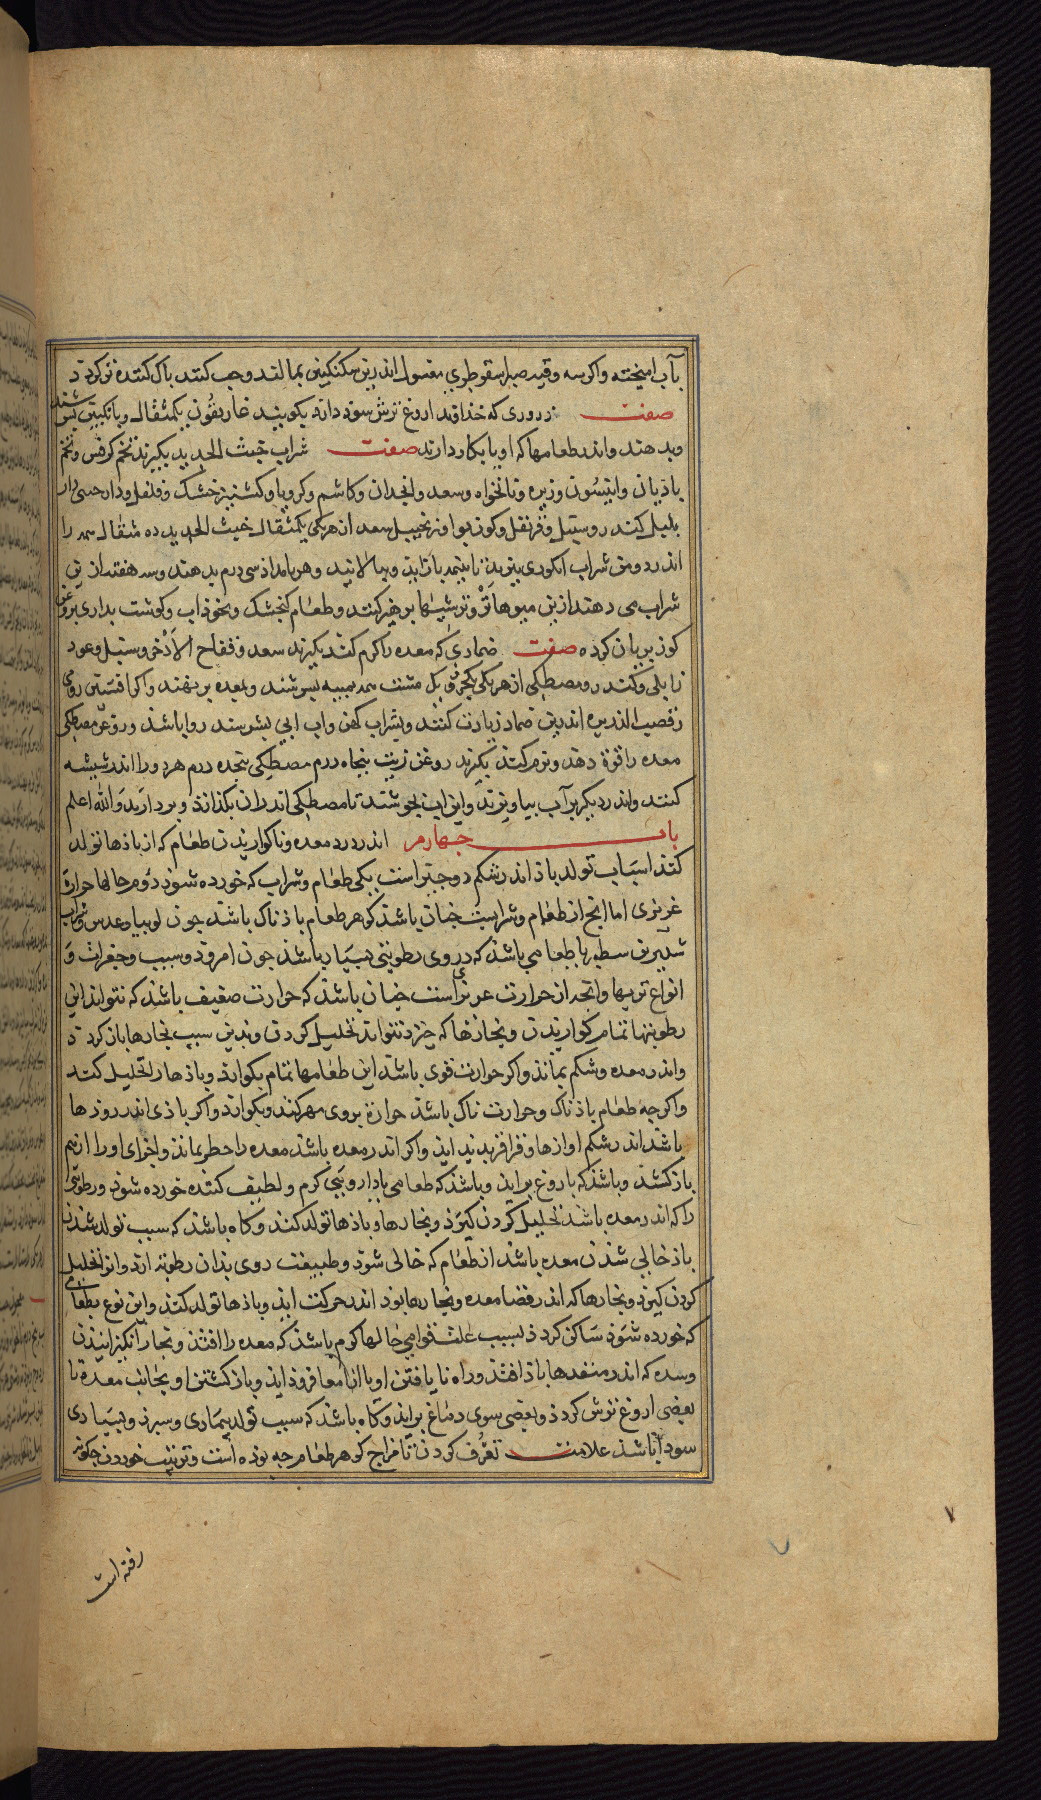 بآب امیخته واکر سه وقیه صبر سقوطری مغسول اندرین سکنکبین بمالند وحب کنند باک کننده تر کردد
صفت ذروری که خداوند اروغ ترش سوذ دارد بکویند غاریقون یکمثقال وبانکبین بسرشند
وبدهند واندر طعامها که او را بکار دارند صفت شراب خبث الحدید بکیرند تخم کرفس وتخم
باذیان وانیسون وزیره ونانخواه وسعد وانجدان وکاشم وکرویا وکشنیز خشک وفلفل ودارجینی دار
بلبل کندر وسنبل وقرنفل وکوزبوا وزنجبیل سعد از هر یکی یکمثقال خبث الحدید ده مثقال همه را
اندر دو من شراب انکوری بپزند تا بنیمه بازاید وببالایند وهر بامداذ سی درم بدهند وسه هفته ازین
شراب می دهند ازین میوهاء تر وترشیها پرهیز کنند وطعام کنجشک ونخوذاب وکوشت بداری بروغن
کوز بریان کرده صفت ضمادی که معده را کرم کند بکیرند سعد وفقاح الاذخر وسنبل وعود
وکندر ومصطکی از هر یکی یکجزو همه بمیبه بسرشند وبمعده برنهند واکر افسنتین رومی
وقصب الذریره اندرین ضماد زیادت کنند وبشراب کهن واب آبی بسرشند روا باشذ وروغن مصطکی
معده را قوة دهد ونرم کند بکیرند روغن زیت پنجاه درم مصطکی بنجده درم هر دو را اندر شیشه
کنند واندر دیک پر آب بیاویزند واین اب بجوشند تا مصطکی اندران بکذازذ وبردارند والله اعلم
باب جهارم اندر درد معده وناکواریذن طعام که از باذها تولد
کند اسباب تولد باذ اندر شکم دو جیز است یکی طعام وشراب که خورده شوذ دوم حالها حرارة
غریزی اما انج از طعام وشرابست جنان باشذ کوهر طعام باذناک باشذ جون لوبیا وعدس وشراب
شیرین سطبر یا طعامی باشذ که در وی رطوبتی بسیار باشذ جون امروذ وسیب وجغرات و
انواع تریها وانجه از حرارت غریزی است جنان باشذ که حرارت ضعیف باشذ که نتواند این
رطوبتها تمام کواریذن وبخارها که خیزد نتواند تحلیل کردن وبدین سبب بخارها باز کردد
واندر معده وشکم بمانذ واکر حرارت قوی باشذ این طعامها تمام بکوارذ وباذها را تحلیل کند
واکرجه طعام باذناک وحرارت ناک باشذ حرارة بروی مهر کند وبکوارد واکر باذی اندر روذها
باشذ اندر شکم اوازها وقراقر بدید ایذ واکر اندر معده باشذ معده را خطر بمانذ واجزای او را از هم
باز کشذ وباشذ که باروغ برایذ وباشذ که طعامی یا داروئی کرم ولطیف کننده خورده شوذ ورطوبتی
را که اندر معده باشذ تحلیل کردن کیرذ وبخارها وباذها تولد کند وکاه باشذ که سبب تولد شذن
باذ خالی شذن معده باشذ از طعام که خالی شوذ وطبیعت روی بذان رطوبة ارذ وانرا تحلیل
کردن کیرذ وبخارها که اندر فضا معده وبخارها بوذ اندر حرکت ایذ وباذها تولد کند واین نوع بطعامی
که خورده شوذ ساکن کرد ذ بسبب علت حالها کرم باشذ که معده را افتذ وبخار انکیزانیذن
وسده که اندر منفذها باذ افتذ وراه نایافتن او با امعا فروذ ایذ وباز کشتن او بجانب معده تا
بعضی اروغ ترش کردذ وبعضی سوی دماغ برایذ وکاه باشذ که سبب تولد بیماری وسبرز وبسیاری
سودا باشذ علامت تعرف کردن تا مزاج کوهر طعام جه بوذه است وترتیب خوردن جکونه
رفته است
۷